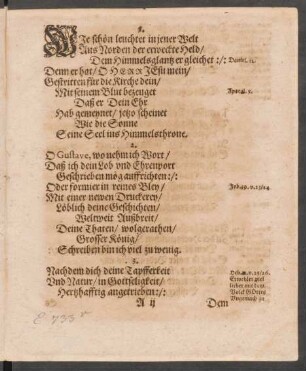 1.
WJe schön leuchtet in jener Welt
Aus Norden der erweckte Held/
Dem Himmelsglantz er gleichet :/: Daniel. 12.
Denn er hat/ O HERR JEsu mein/
Gestritten für die Kirche dein/
Mit seinem Blut bezeuget Apocal. 1.
Daß er Dein Ehr
Hab gemeynet/ jetzo scheinet
Wie die Sonne
Seine Seel ins Himmelsthrone.
2.
O Gustave, wo nehm ich Wort/
Daß ich dein Lob und Ehrenport
Geschrieben mög auffrichten:/:
Oder formier in reines Bley/
Mit einer newen Druckerey/
Löblich deine Geschichten/
Weltweit Außbreit/
Deine Thaten/ wolgerathen/
Grosser König/
Schreiben bin ich viel zu wenig.
3.
Nachdem dich deine Tapfferkeit
Und Natur/ in Gottseligkeit/
Hertzhafftig angetrieben:/:
A ij Dem